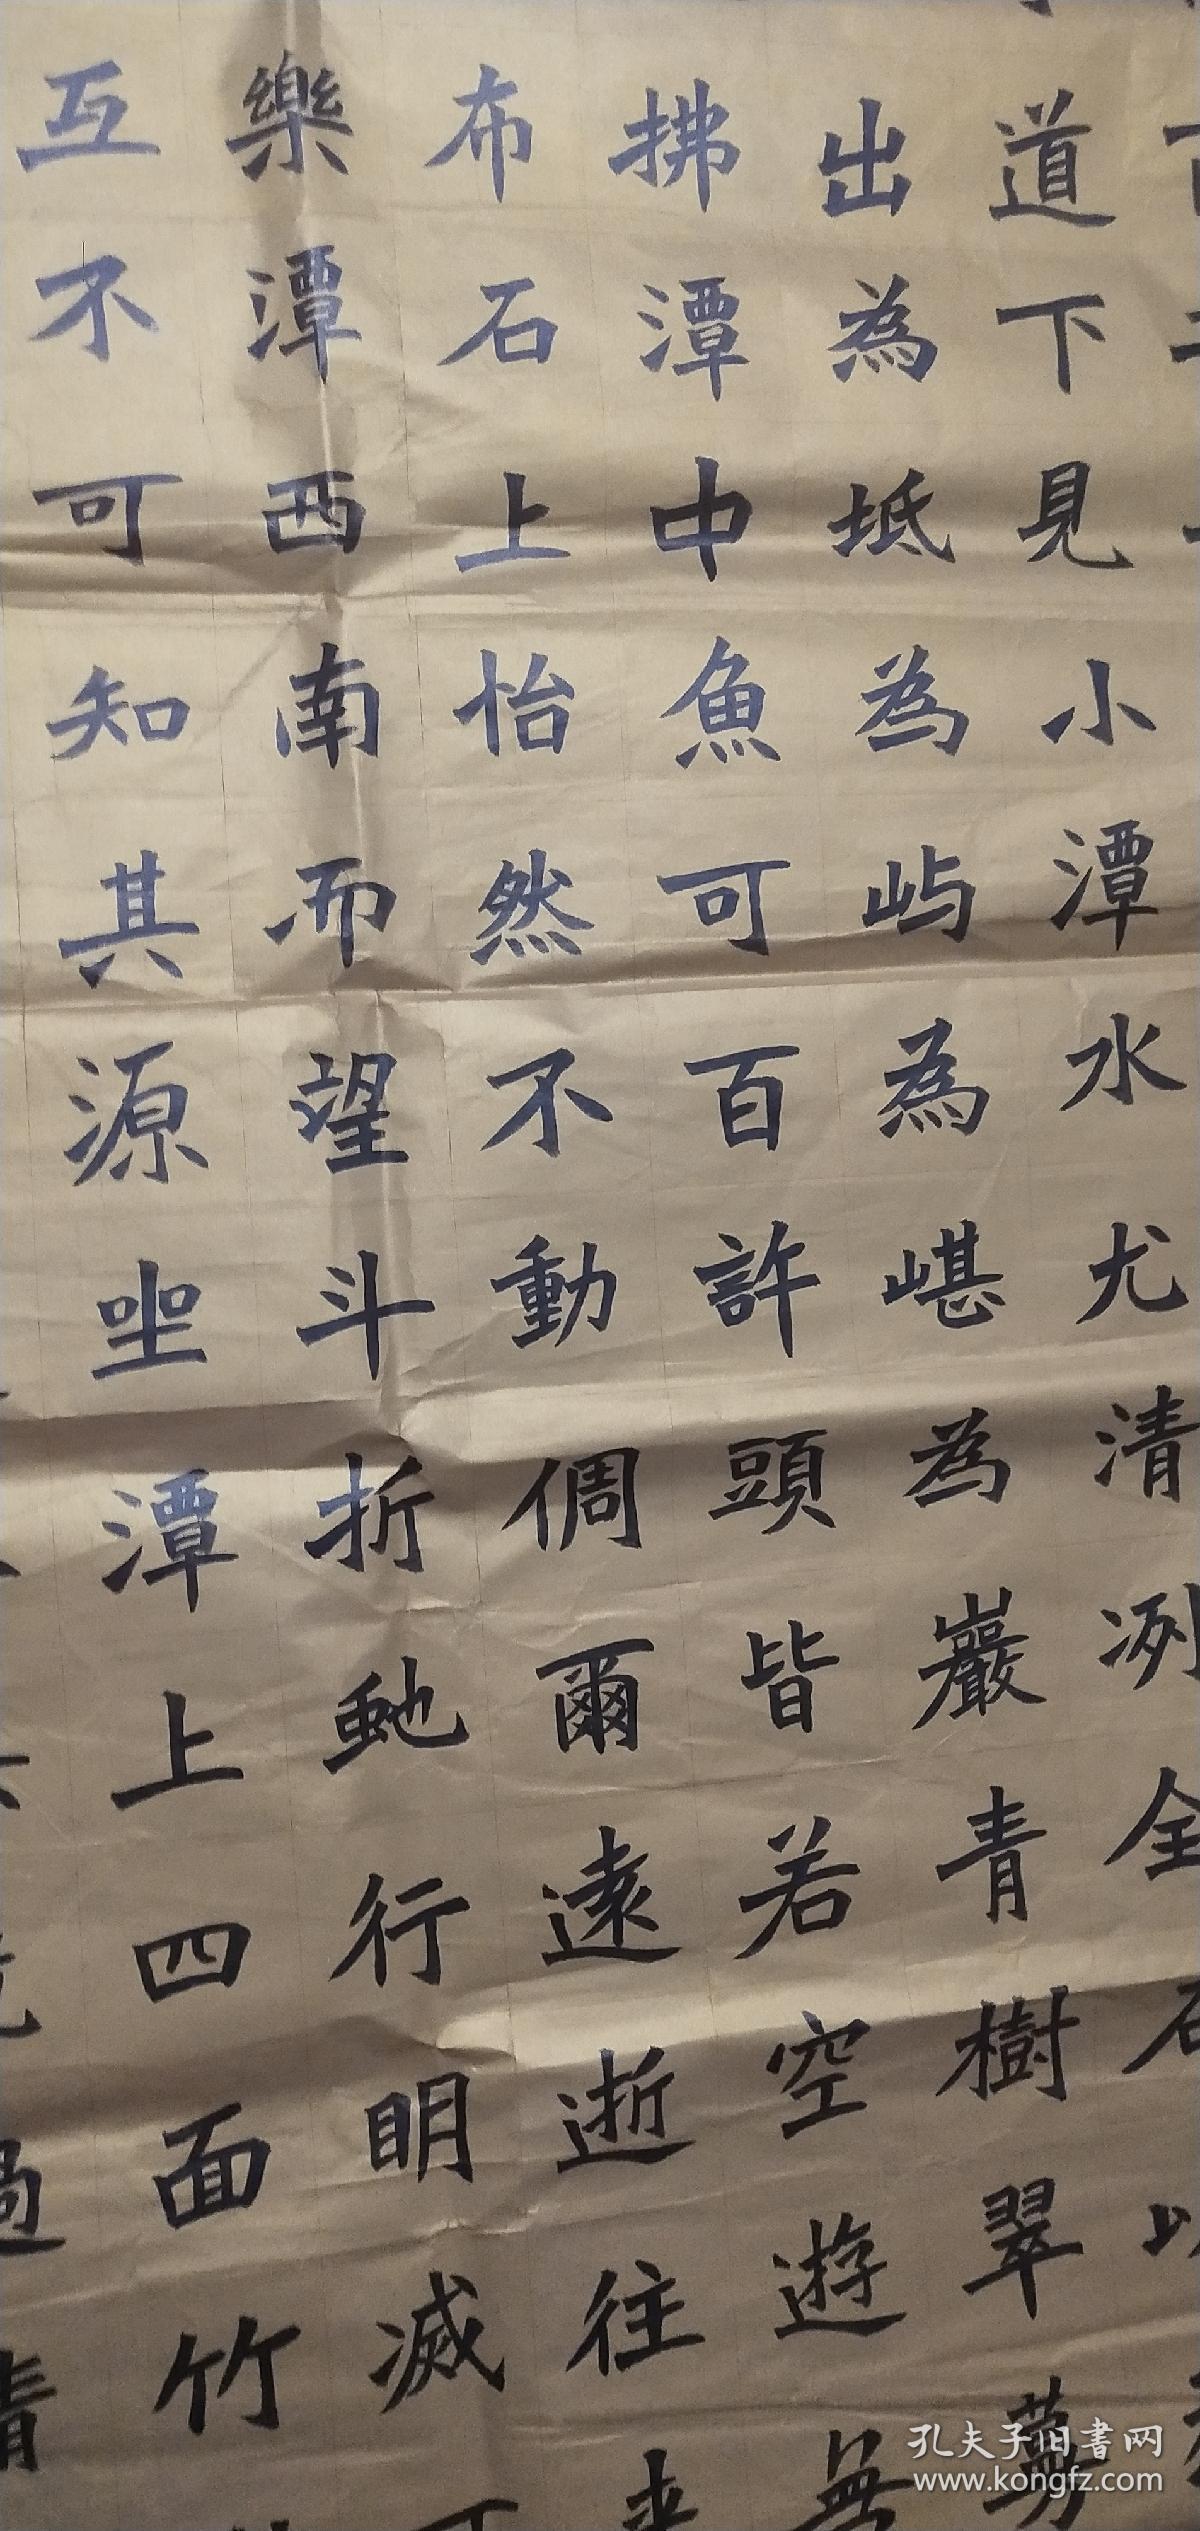 道下見小潭水尤清冽全石以
出為坻為屿為嵁為巖青樹翠蔓
拂潭中魚可百許頭皆若空遊無
布石上怡然不動倜爾遠逝往来
樂潭西南而望斗折虵行明滅可
互不可知其源坐潭上四面竹
過清
孔夫子旧书网
www.kongfz.com